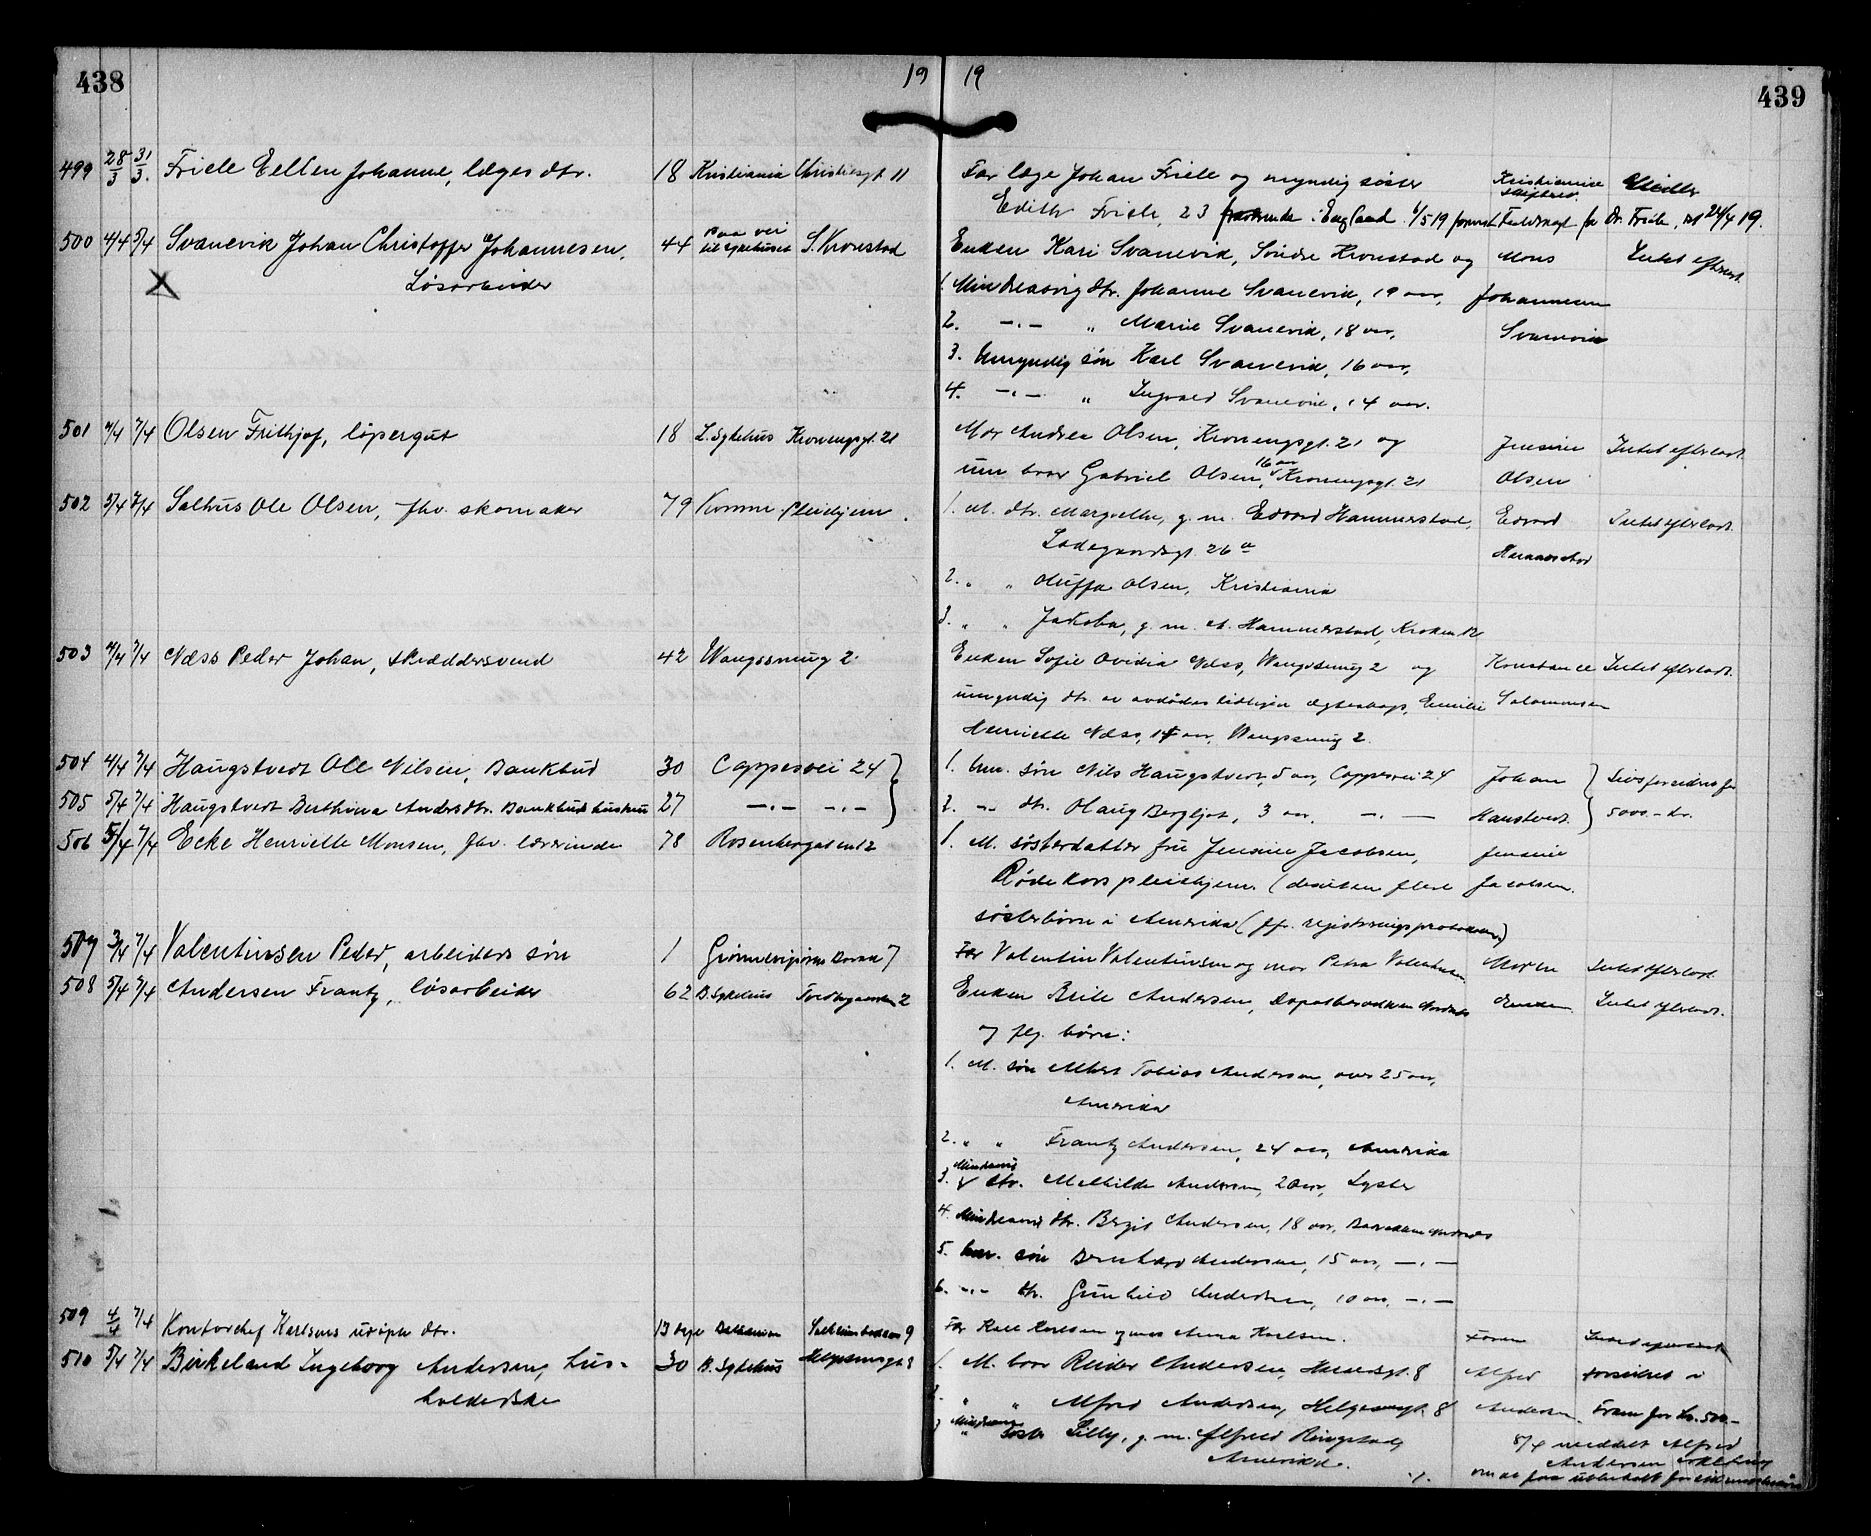 438
19 19
439
499 28/3 31/3. Friele Ellen Johanne, læges dtr. 18 Kristiania Christiesgt. 11 Far læge Johan Friele og myndig søster Kristiania skifteret
Edith Friele, 23 England 6/5 19 Dr. Friele, 24/4 19.
500 4/4 5/4 Svanevik Johan Christoffer Johannesen, 44 Paa vei til sykehuset S. Kronstad Enken Kari Svanevik, Søndre Kronstad og Mons Intet efterladt.
X Løsarbeider 1. Mindreaarig dtr. Johanne Svanevik, 19 aar, Johannesen
2. -"- " Marie Svanevik, 18 aar, Svanevik
3. Umyndig søn Karl Svanevik, 16 aar,
4. -"- " Ingvald Svanevik, 14 aar.
501 4/4 7/4 Olsen Frithjof, løpergut 18 L. Sykehus Kronengsgt. 21 Mor Andrea Olsen, Kronengsgt. 21 og Jensine Intet efterladt.
um bror Gabriel Olsen, 16 aar Kronengsgt. 21 Olsen
502 5/4 7/4 Salhus Ole Olsen, fhv. skomaker 79 Komm. Pleiehjem. 1. M. dtr. Margrethe, g. m. Edvard Hammerstad, Edvard Intet efterladt.
Ladegaardsgt. 26 a Hammerstad
2. " " Oluffa Olsen, Kristiania
3. " " Jakoba, g. m. A. Hammerstad, Kroken 12
503 4/4 7/4 Næss Peder Johan, skræddersvend 42 Wangssmug 2. Enken Sofie Ovidia Næss, Wangssmug 2 og Konstance Intet efterladt.
umyndig dtr. av avdødes tidligere egteskap, Emilie Salomonsen
Henriette Næss, 14 aar, Wangssmug 2.
504 4/4 7/4 Haugstvedt Ole Nilsen, Bankbud 30 Cappesvei 24 1. Um. søn Nils Haugstvedt, 5 aar, Cappesvei 24 Johan Livsforsikret for
505 5/4 7/4 Haugstvedt Berthina Andersdtr. Bankbuds hustru 27 -"- -"- 2. -"- dtr. Olaug Bergljot, 3 aar, -"- Haustvedt. 5000.- kr.
506 5/4 7/4 Ecke Henriette Monsen, fhv. lærerinde 78 Rosenbergsgaten 12 1. M. søsterdatter fru Jensine Jacobsen, Jensine
Røde Kors pleiehjem. (desuten flere Jacobsen.
søsterbørn i Amerika (jfr. registreringsprotokollen)
507 3/4 7/4 Valentinsen Peder, arbeiders søn 1 7 Far Valentin Valentinsen og mor Petra Valentinsen Moren Intet efterladt
508 5/4 7/4 Andersen Frantz, løsarbeider 62 B. Sykehus 2 Enken Brite Andersen, Nordnes Enken. Intet efterladt.
og flg. børn:
1. M. søn Albert Tobias Andersen, over 25 aar,
Amerika
2. " " Frantz Andersen, 24 aar, Amerika
3. Mindreaarig dtr. Mathilde Andersen, 20 aar, Lyster
4. Mindreaarig dtr. Bergit Andersen, 18 aar, Nordnes
5. Um. søn Bernhard Andersen, 15 aar, -"-
6. -"- dtr. Gunhild Andersen, 10 aar, -"-
509 4/4 7/4 Kontorchef Karlsens udøpte dtr. 13 dage Bethanien 9 Far Karlsen og mor Anna Karlsen. Faren Intet efterladt
510 5/4 7/4 Birkeland Ingeborg Andersen, hus- 30 B. Sykehus Helgesensgt. 8 1. M. bror Reidar Andersen, 8 Alfred Forsikret i
holderske 2. " " Alfred Andersen, Helgesensgt. 8 Andersen. Fram for kr. 500.-
3. Mindreaarig søster Lilly, g. m. Alfred Ringstad, 8/4 meddelt Alfred
Amerika. Andersen
om at faa utbetalt